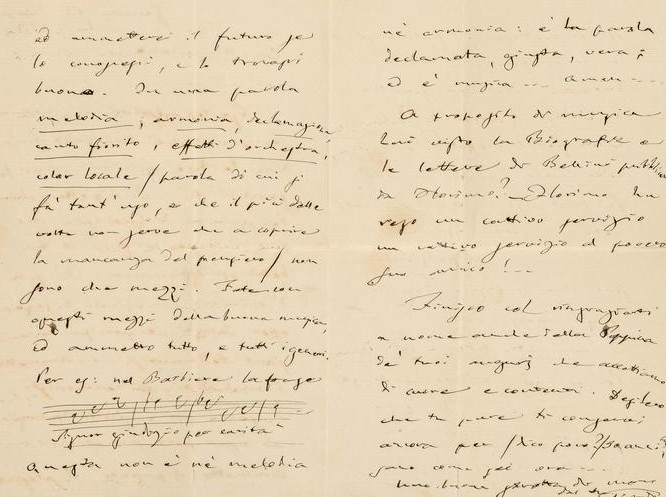 ed ammetterei il futuro se
lo conoscessi, e lo trovassi
buono. In una parola
melodia, armonia, declamazione,
canto fiorito, effetti d'orchestra,
color locale / parola di cui si
fà tant'uso, e che il più delle
volte non serve che a coprire
la mancanza del pensiero / non
sono che mezzi. Fate con
questi mezzi della buona musica,
ed ammetto tutto, e tutti i generi.
Per es: nel Barbiere la frase
Signor giudizio per carità
questa non è nè melodia
nè armonia: è la parola
declamata, giusta, vera;
ed è musica ... amen ...
A proposito di musica
hai visto la Biografia e
le lettere di Bellini pubblicate
da Florimo? Florimo ha
reso un cattivo servizio
un cattivo servizio al povero
suo amico! ..
Finisco col ringraziarti
a nome anche della Peppina
de' tuoi augurj che accettiamo
di cuore e contenti. Desidero
che tu pure ti conservi
ancora per / dico poco? /
sano come sei ora ...